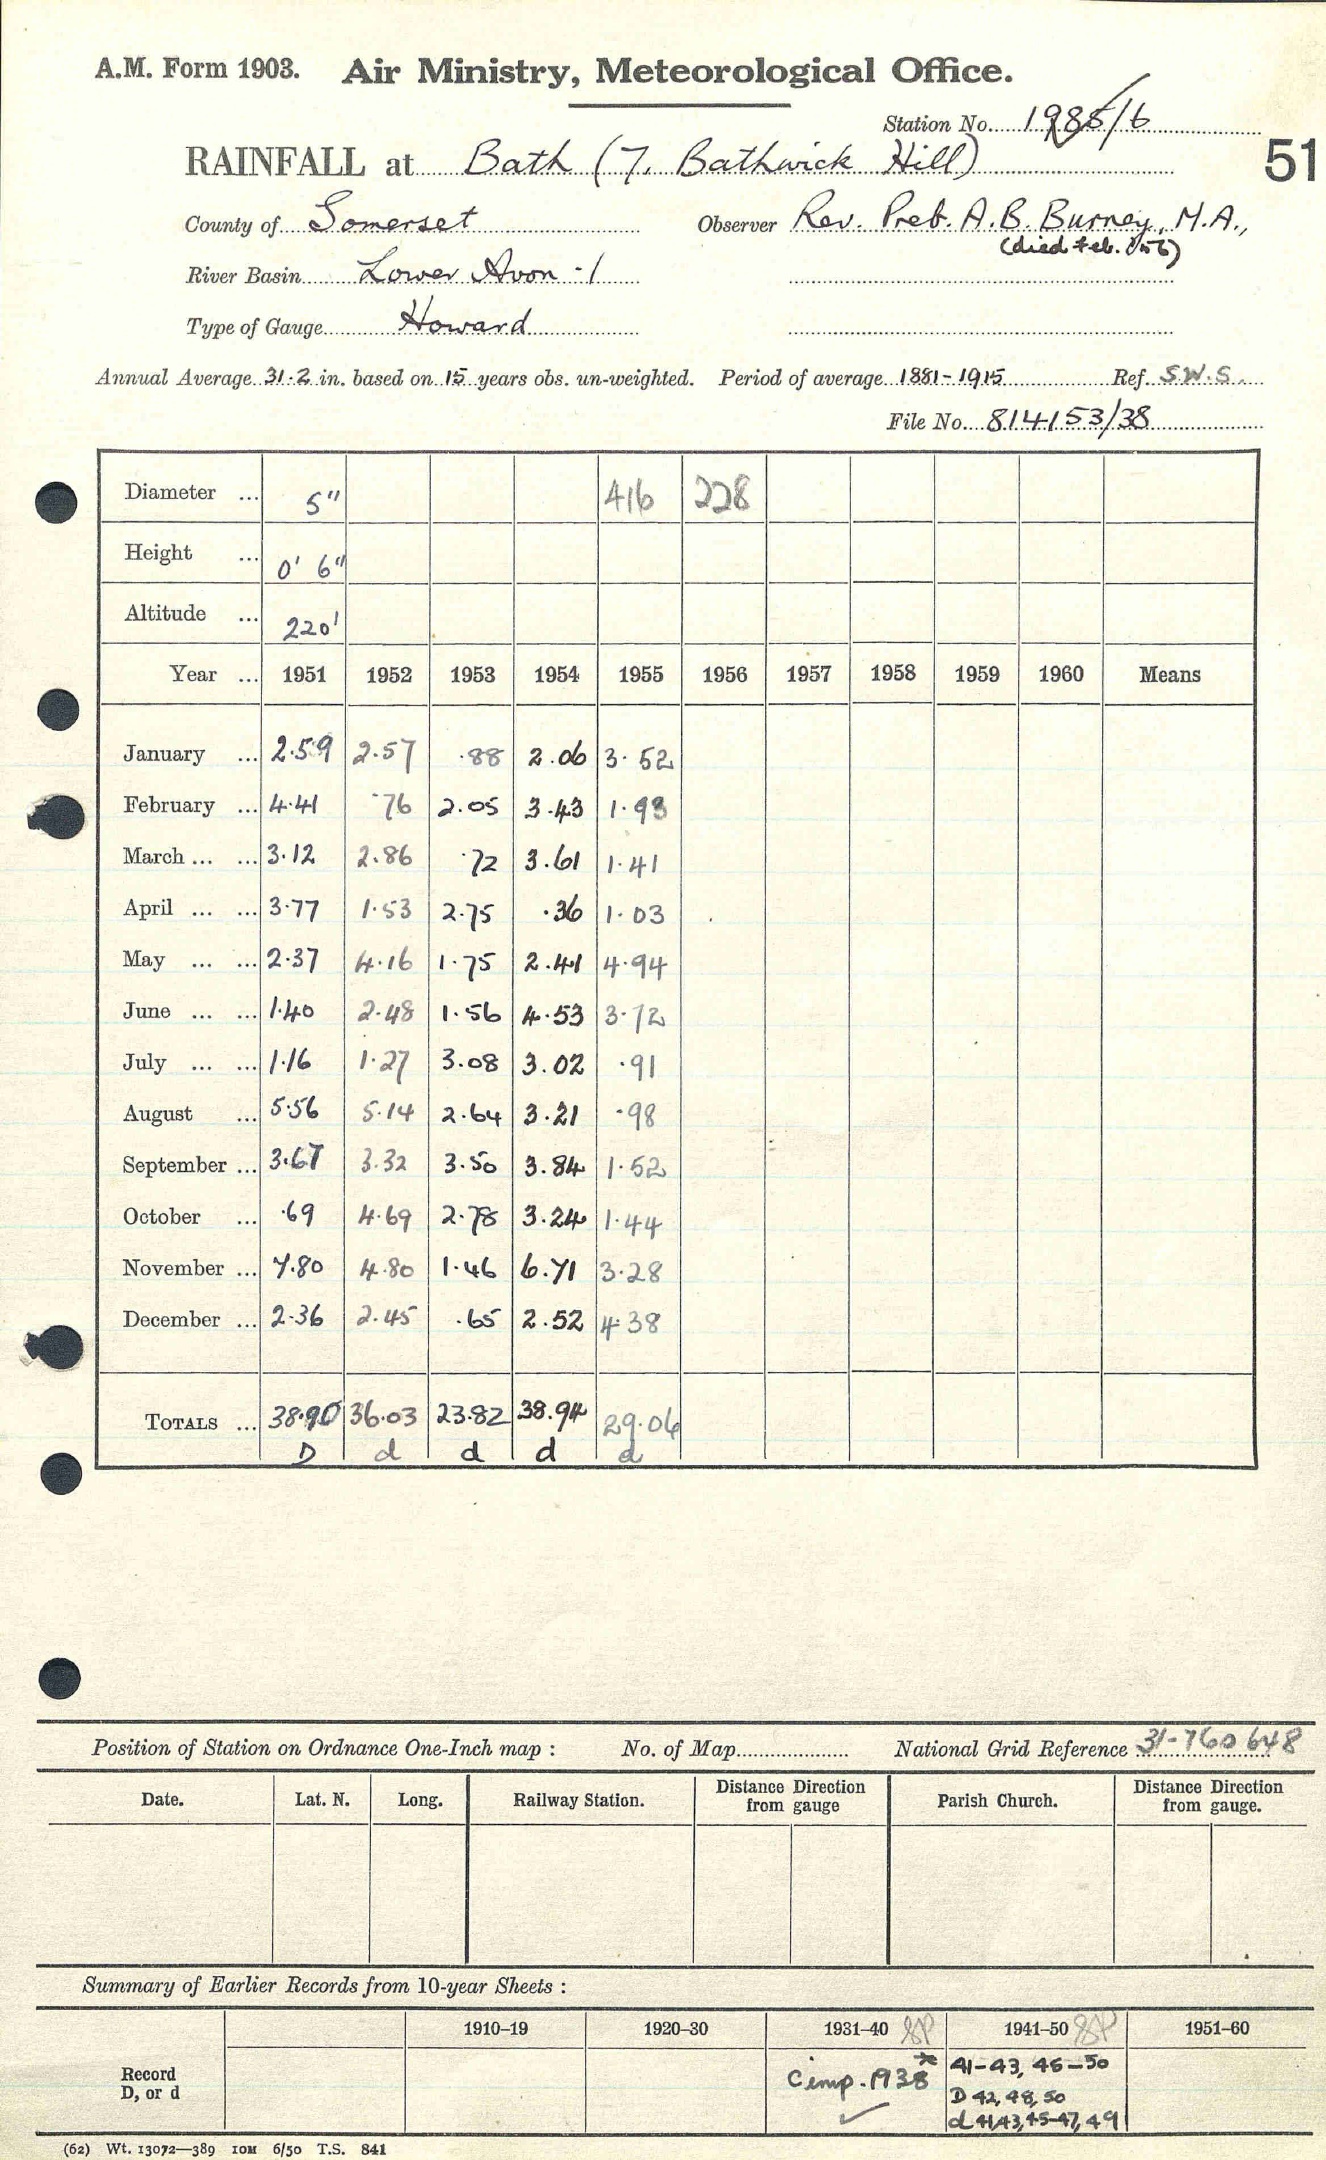 A.M. Form 1903. Air Ministry, Meteorological Office.
Station No. 1985/6
RAINFALL at Bath (7. Bathwick Hill)
51
County of Somerset Observer Rev. Preb. A.B. Burney, M.A.,
(died Feb. '56)
River Basin Lower Avon -1
Type of Gauge Howard
Annual Average 31.2 in. based on 15 years obs. un-weighted. Period of average 1881-1915 Ref. S.W.S.
File No. 814153/38
Diameter ... 5" 416 228
Height ... 0' 6"
Altitude ... 220'
Year ... 1951 1952 1953 1954 1955 1956 1957 1958 1959 1960 Means
January ... 2.59 2.57 .88 2.06 3.52
February ... 4.41 .76 2.05 3.43 1.93
March ... ... 3.12 2.86 .72 3.61 1.41
April ... ... 3.77 1.53 2.75 .36 1.03
May ... ... 2.37 4.16 1.75 2.41 4.94
June ... ... 1.40 2.48 1.56 4.53 3.72
July ... ... 1.16 1.27 3.08 3.02 .91
August ... 5.56 5.14 2.64 3.21 .98
September ... 3.67 3.32 3.50 3.84 1.52
October ... .69 4.69 2.78 3.24 1.44
November ... 7.80 4.80 1.46 6.71 3.28
December ... 2.36 2.45 .65 2.52 4.38
TOTALS ... 38.90 36.03 23.82 38.94 29.06
D d d d d
Position of Station on Ordnance One-Inch map : No. of Map National Grid Reference 31-760648
Date. Lat. N. Long. Railway Station. Distance from Direction gauge Parish Church. Distance from Direction gauge.
Summary of Earlier Records from 10-year Sheets :
1910–19 1920–30 1931–40 1941–50 1951–60
Record
D, or d
Cimp. 1938 *
41-43, 45-50
D 42, 48, 50
d 41,43,45-47,49
(62) Wt. 13072—389 10M 6/50 T.S. 841